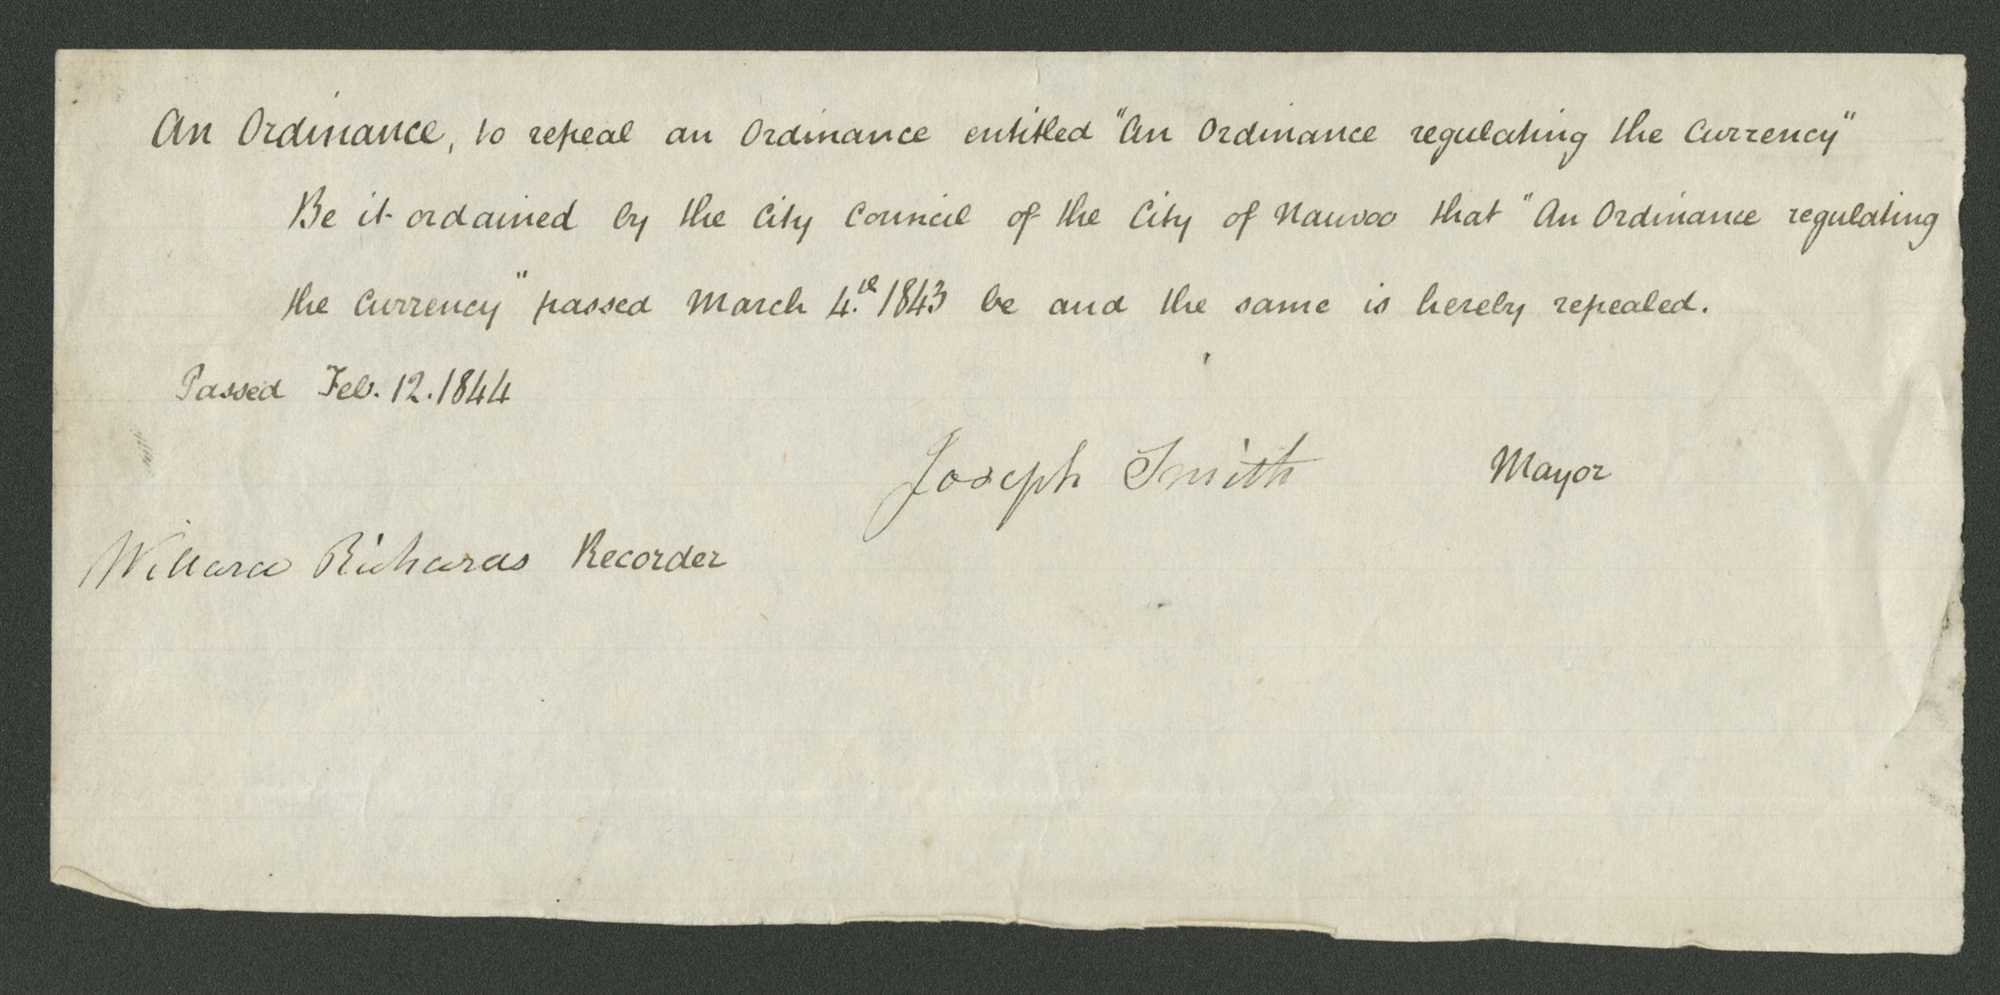 An Ordinance, to repeal an Ordinance entitled "An Ordinance regulating the Currency"
Be it ordained by the City Council of the City of Nauvoo that "An Ordinance regulating
the Currency" passed March 4.th 1843 be and the same is hereby repealed.
Passed Feb. 12. 1844
Joseph Smith Mayor
Willard Richards Recorder